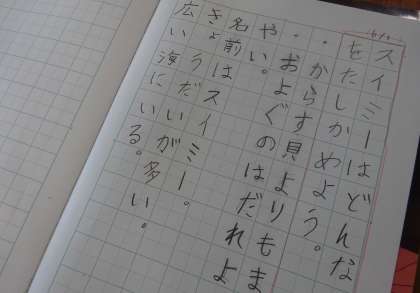 スイミーはどんな
をたしかめよう。
・からす貝よりもま
・およぐのはだれよ
やい。
名前はスイミー。
きょうだいが多い。
広い海にいる。